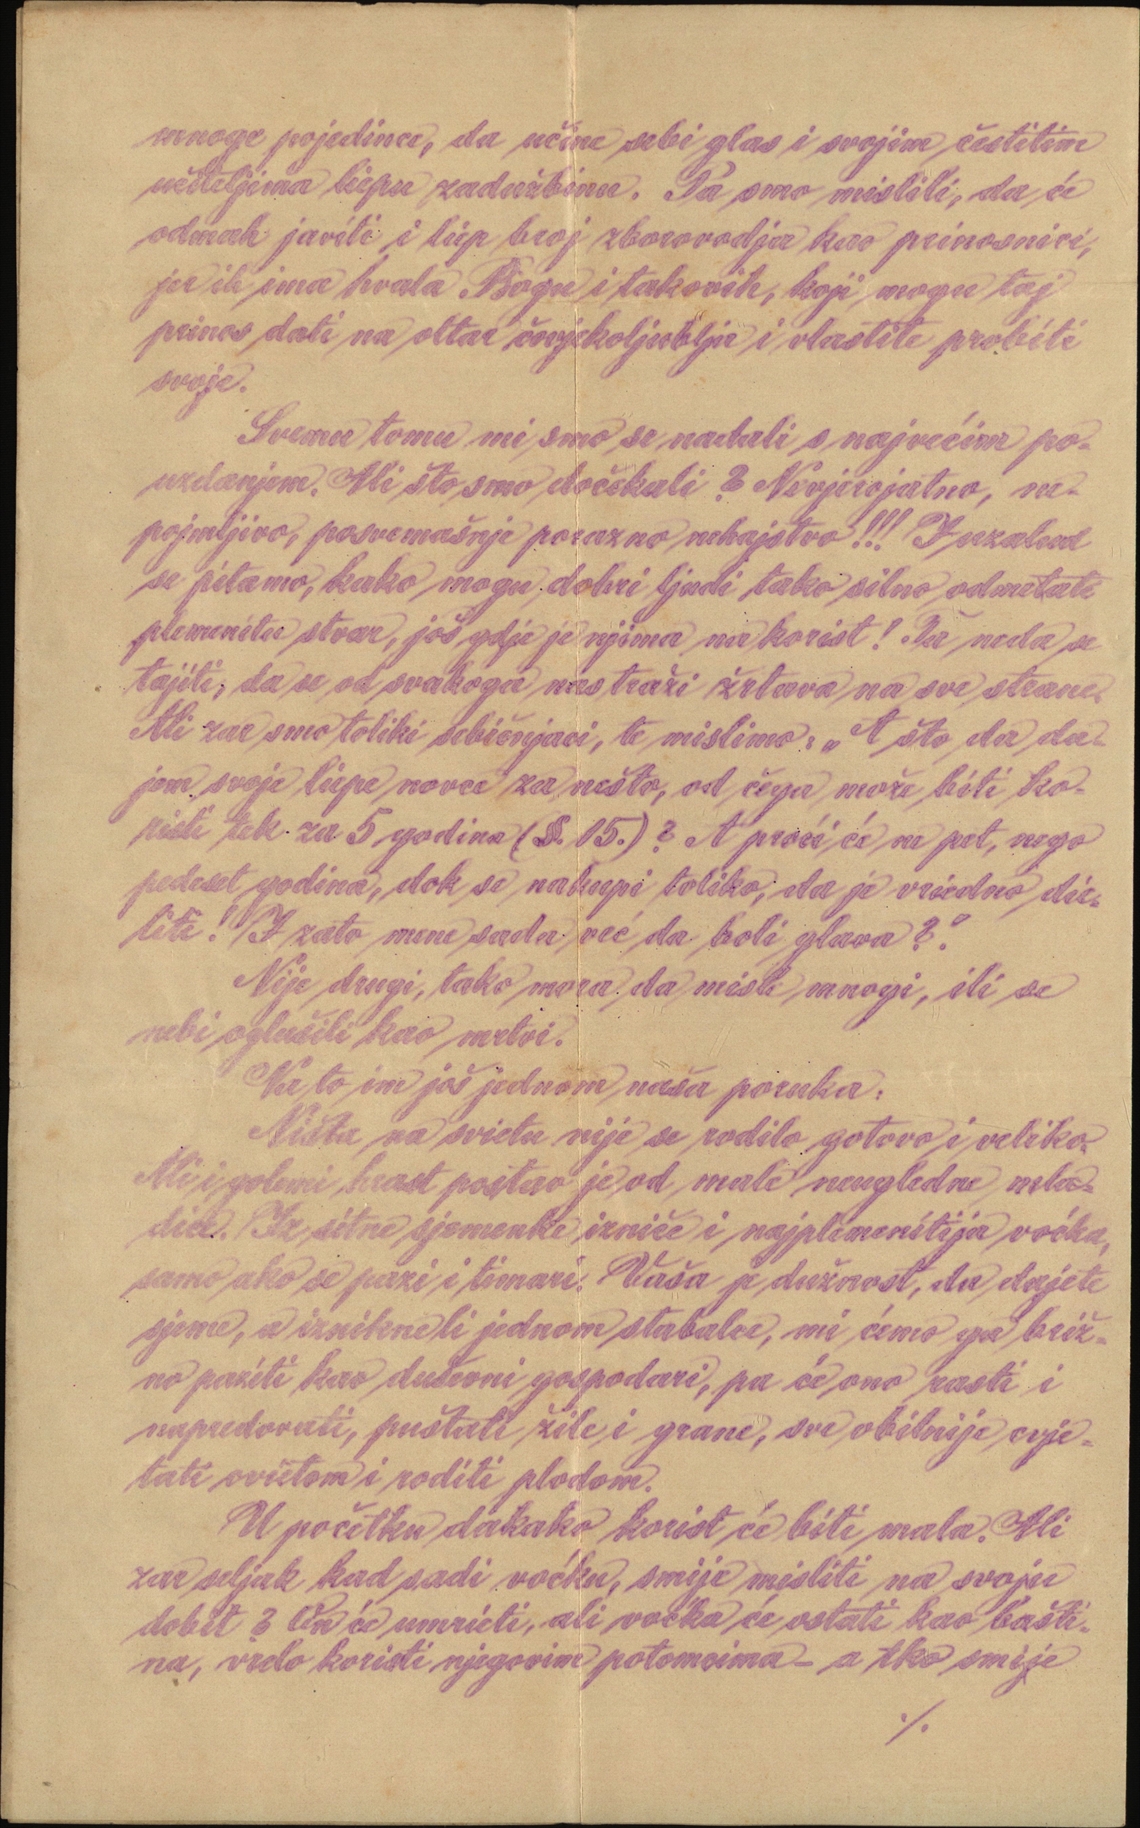 mnoge pojedince, da učine sebi glas i svojim čestitim
učiteljima liepu zadužbinu. Ta smo mislili, da će
odmah javiti i liep broj zborovodja kao prinosnici,
jer ih ima hvala Bogu i takovih, koji mogu taj
prinos dati na oltar čovjekoljublja i vlastite probiti
svoje.
Svemu tomu mi smo se nadali s najvećim po-
uzdanjem. Ali što smo dočekali? Nevjerojatno, ne-
pojmljivo, posvemašnje porazno nehajstvo!!! I uzalud
se pitamo, kako mogu dobri ljudi tako silno odmetati
plemenitu stvar, još gdje je njima na korist! Ta neda se
tajiti, da se od svakoga nas traži žrtava na sve strane.
Ali zar smo toliki sebičnjaci, te mislimo: „A što da da-
jem svoje liepe novce za nešto, od čega može biti ko-
risti tek za 5 godina (§. 15.)? A proći će ne pet, nego
pedeset godina, dok se nakupi toliko, da je vriedno die-
liti! I zato mene sada već da boli glava?"
Nije drugi, tako mora da misle mnogi, ili se
nebi oglušili kao mrtvi.
Na to im još jednom naša poruka:
Ništa na svietu nije se rodilo gotovo i veliko.
Ali i golemi hrast postao je od male neugledne mla-
dice. Iz sitne sjemenke izniče i najplemenitija voćka,
samo ako se pazi i timari. Vaša je dužnost, da dajete
sjeme, a iznikne li jednom stabalce, mi ćemo ga briž-
no paziti kao duševni gospodari, pa će ono rasti i
napredovati, puštati žile i grane, sve obilnije cvje-
tati cvietom i roditi plodom.
U početku dakako korist će biti mala. Ali
zar seljak kad sadi voćku, smije misliti na svoju
dobit? On će umrieti, ali voćka će ostati kao bašti-
na, vrelo koristi njegovim potomcima – a tko smije
./.